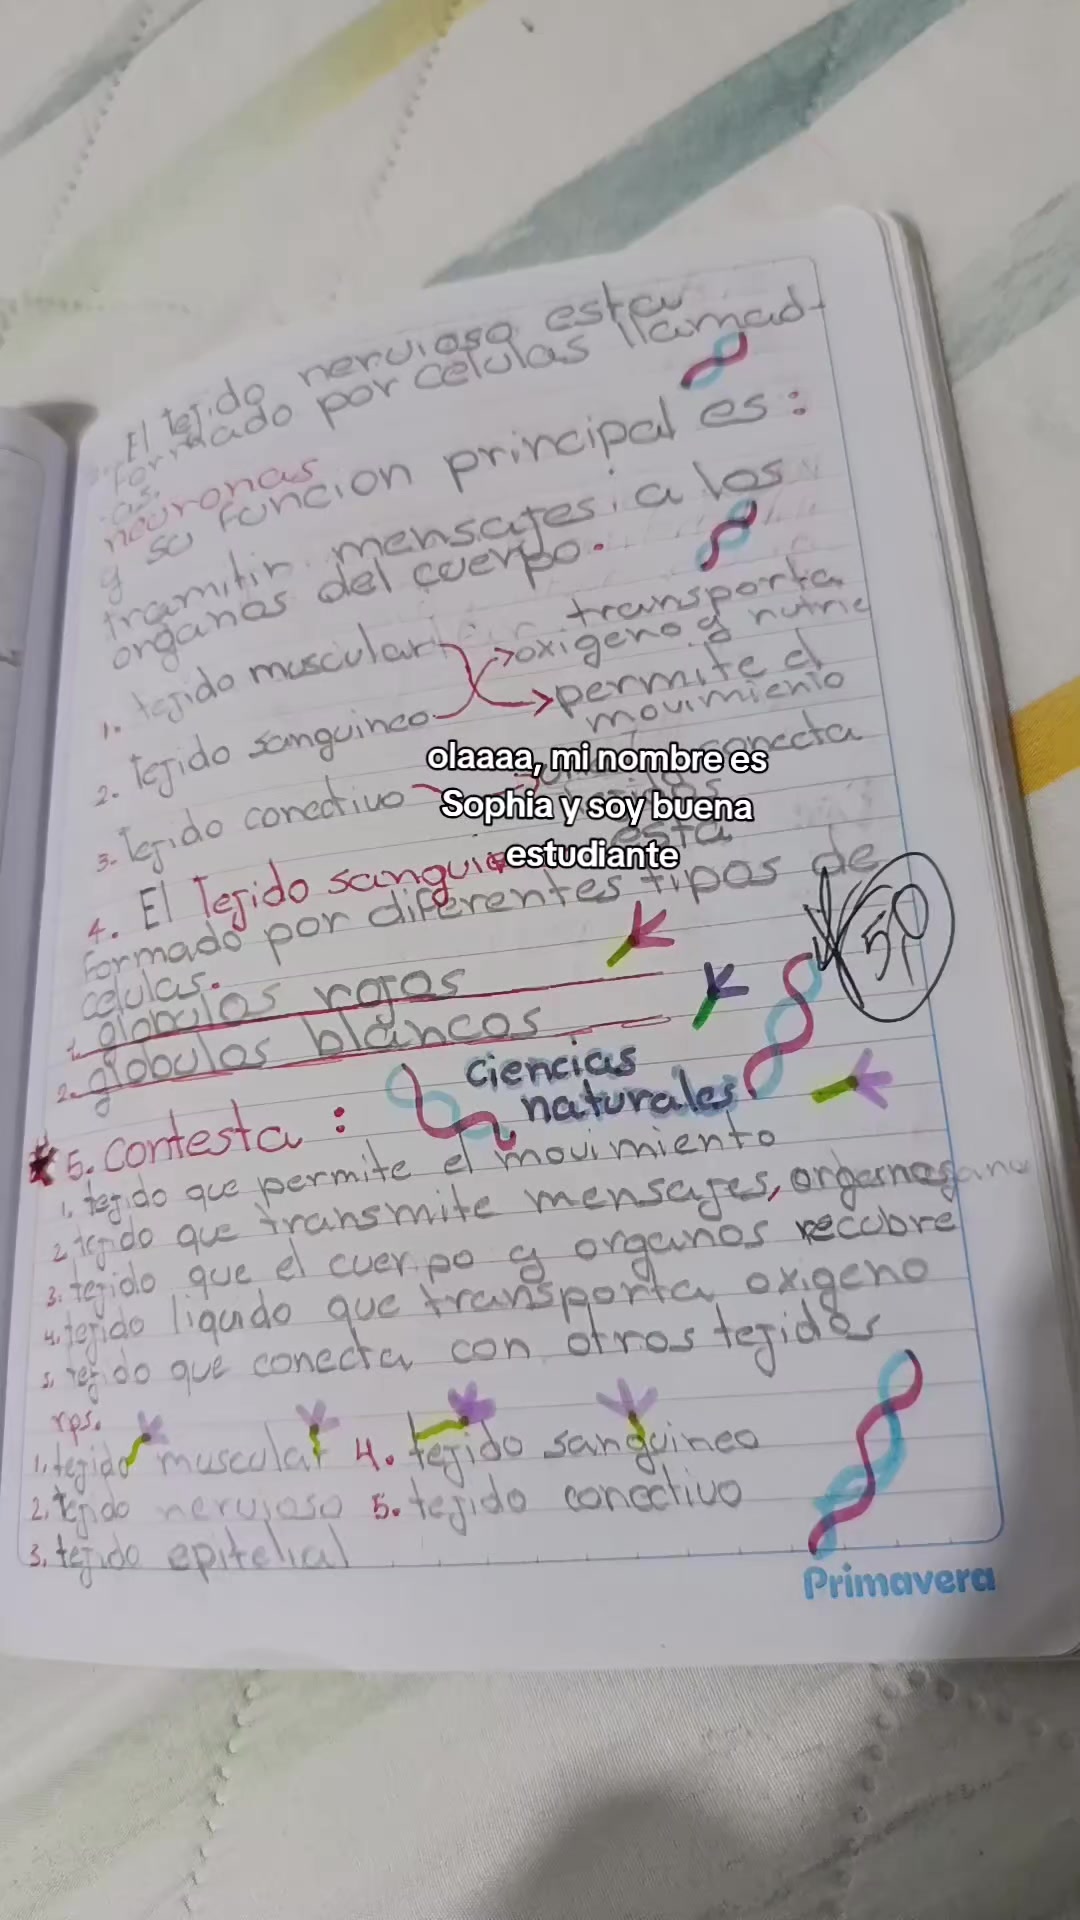 El tejido nervioso esta
formado por celulas llamad-
as.
neuronas
y su funcion principal es:
tramitir mensajes a los
organos del cuerpo.
1. tejido muscular
transporta
oxigeno y nutrie
2. tejido sanguineo
permite el
movimiento
3. tejido conectivo
conecta
olaaaa, mi nombre es
Sophia y soy buena
estudiante
4. El Tejido sangui esta
formado por diferentes tipos de
celulas.
1. globulos rojos
2. globulos blancos
50
ciencias
naturales
5. contesta:
1. tejido que permite el movimiento
2. tejido que transmite mensajes, organos
3. tejido que el cuerpo y organos recubre
4. tejido liquido que transporta oxigeno
5. tejido que conecta con otros tejidos
rps.
1. tejido muscular 4. tejido sanguineo
2. tejido nervioso 5. tejido conectivo
3. tejido epitelial
Primavera